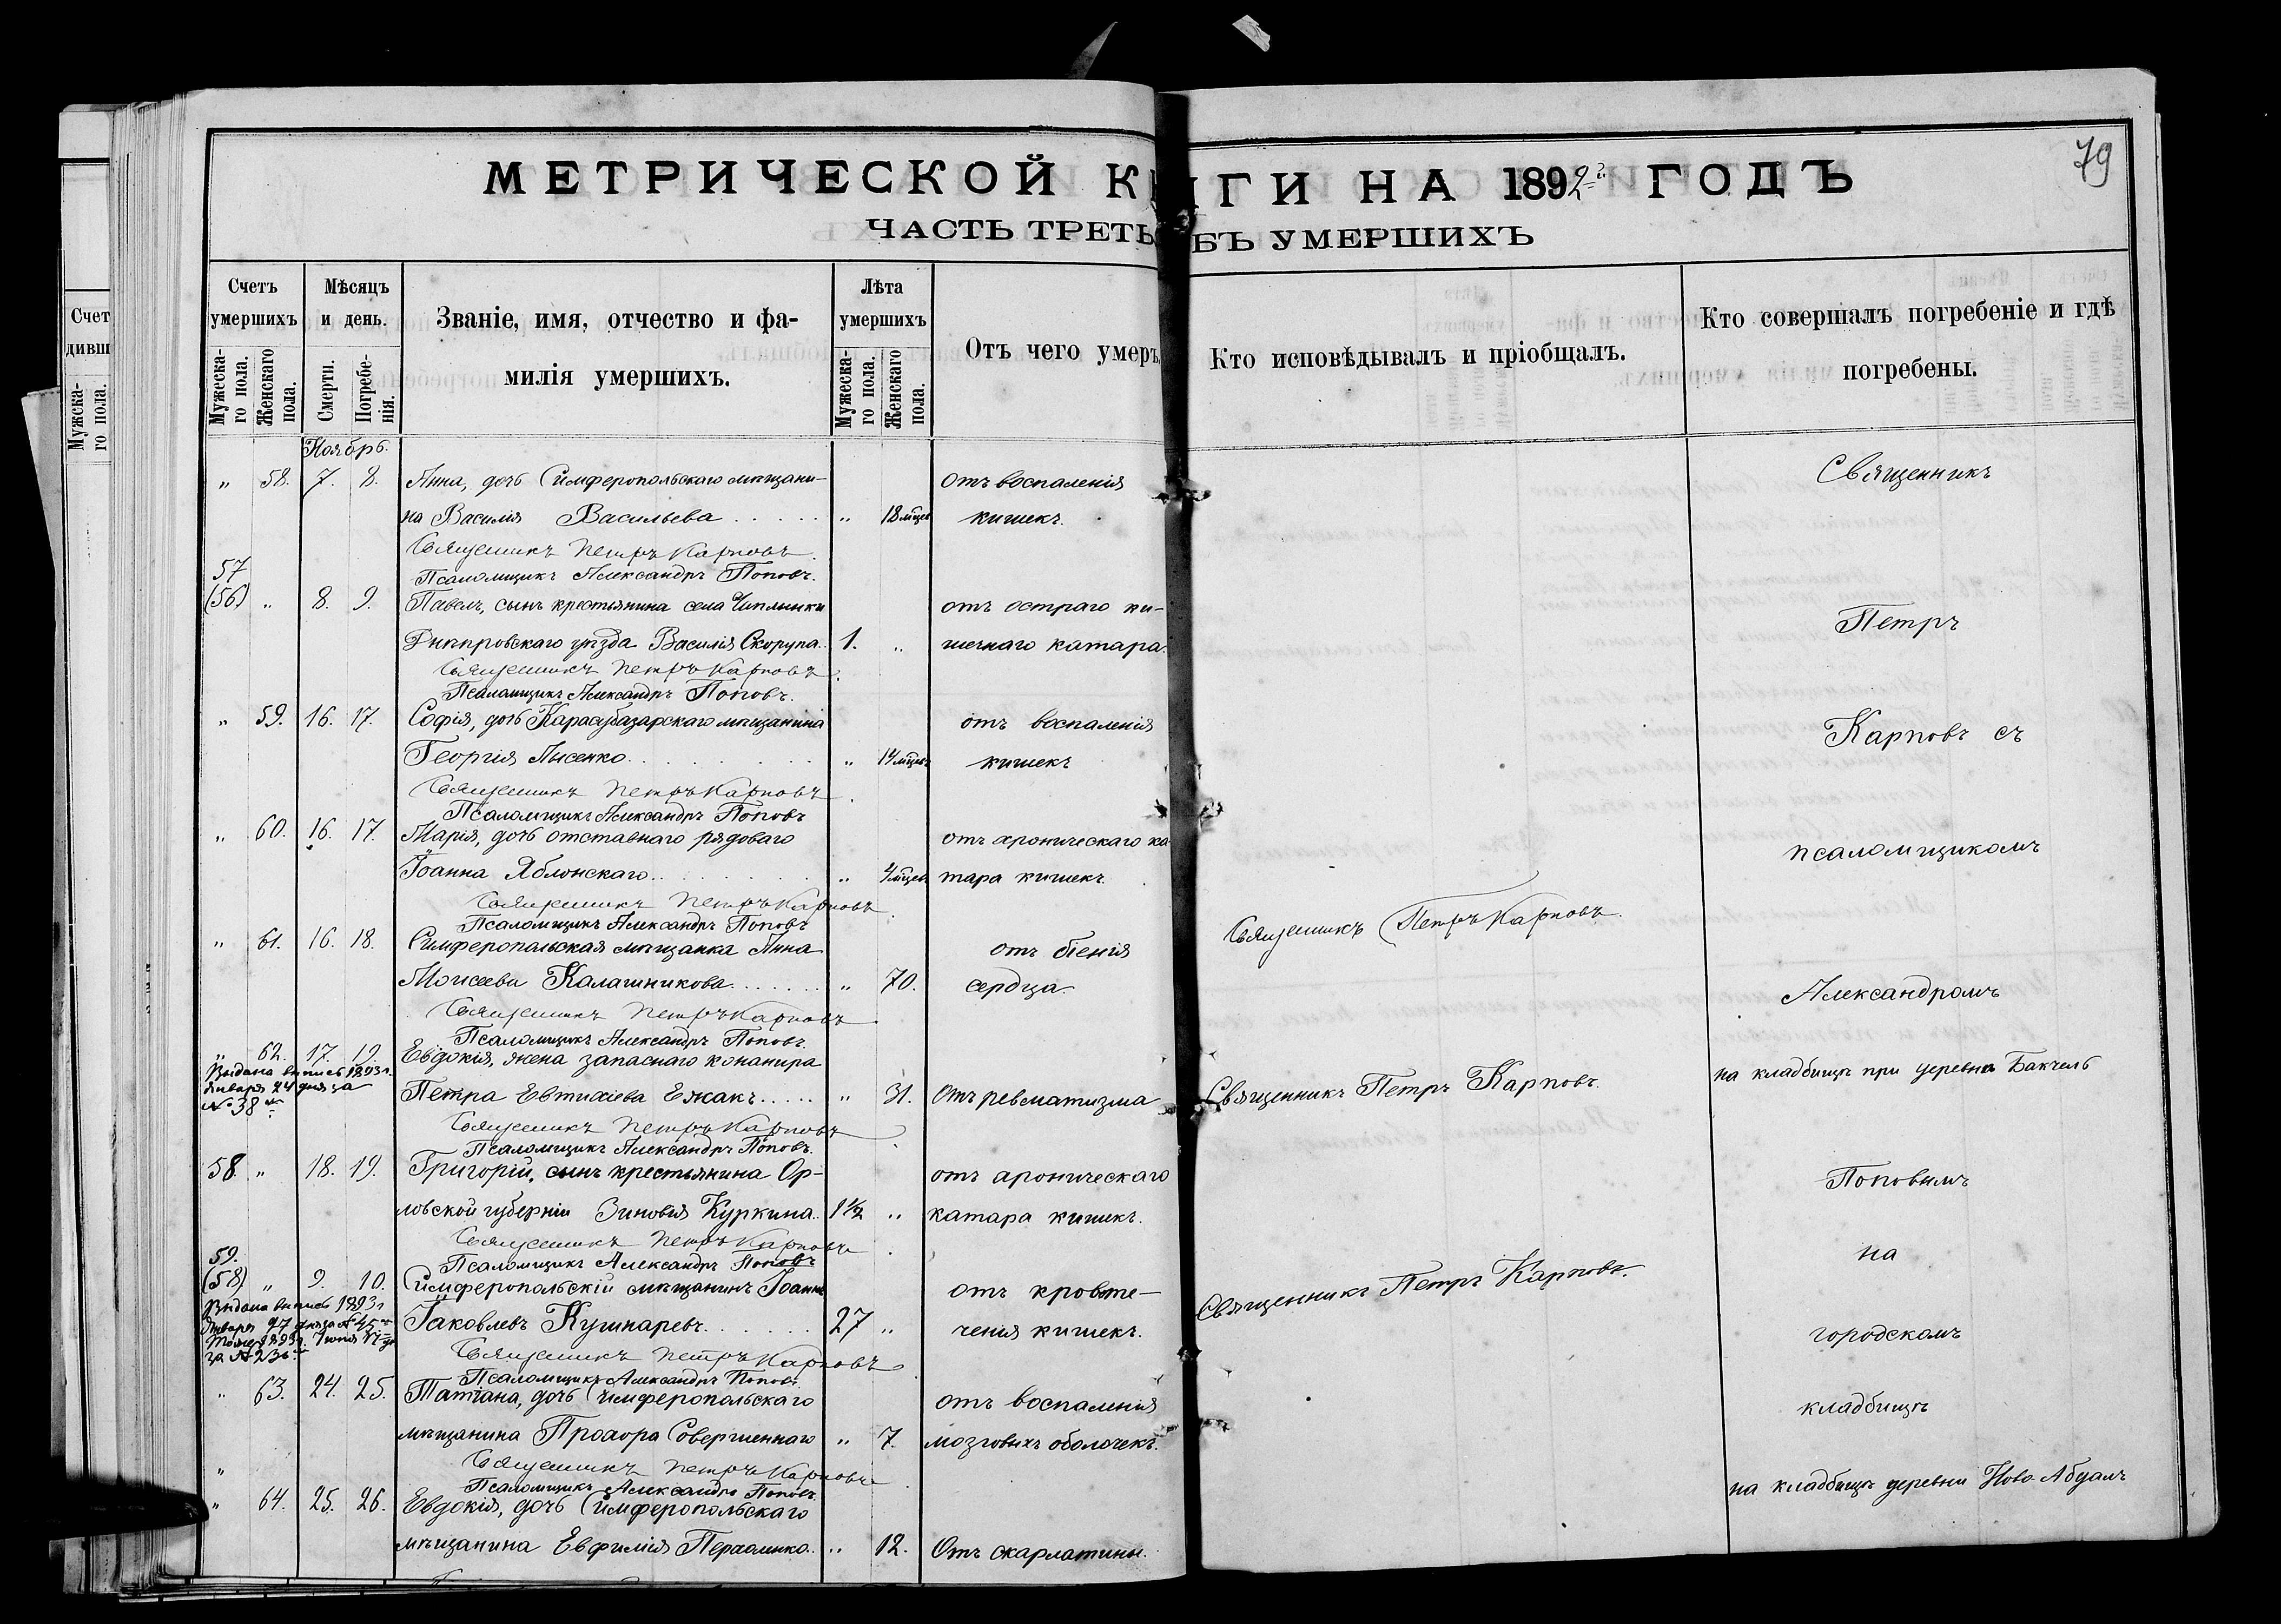 79
МЕТРИЧЕСКОЙ КНИГИ НА 1892й ГОДЪ
ЧАСТЬ ТРЕТЬ БЪ УМЕРШИХЪ
Счет
дивш
Мужска-
го пола.
Счетъ умершихъ
Мужеска-
го пола.
Женскаго
пола.
Мѣсяцъ и день.
Смерти.
Погребе-
нія.
Званіе, имя, отчество и фа-
милія умершихъ.
Лѣта умершихъ
Мужеска-
го пола.
Женскаго
пола.
Отъ чего умеръ.
Кто исповѣдывалъ и пріобщалъ.
Кто совершалъ погребеніе и гдѣ
погребены.
Ноябрь.
„ 58. 7. 8. Анна, дочь Симферопольскаго мѣщани- отъ воспаленія
на Василія Васильева . . . . . „ 18 мѣсц кишекъ.
Священникъ Петръ Карповъ.
Псаломщикъ Александръ Поповъ.
57
(56) „ 8. 9. Павелъ, сынъ крестьянина села Чиплынки отъ остраго ки-
Днѣпровскаго уѣзда Василія Скорупа . . 1. „ шечнаго катара.
Священникъ Петръ Карповъ.
Псаломщикъ Александръ Поповъ.
„ 59. 16. 17. Софія, дочь Карасубазарскаго мѣщанина отъ воспаленія
Георгія Лысенко . . . . . . . „ 14 мѣсц кишекъ
Священникъ Петръ Карповъ.
Псаломщикъ Александръ Поповъ
„ 60. 16. 17. Марія, дочь отставнаго рядоваго отъ хроническаго ка-
Іоанна Яблонскаго . . . . . . . „ 4 мѣсц тара кишекъ.
Священникъ Петръ Карповъ.
Псаломщикъ Александръ Поповъ
„ 61. 16. 18. Симферопольская мѣщанка Анна отъ біенія
Моисеева Калашникова . . . . . . „ 70. сердца.
Священникъ Петръ Карповъ.
Священникъ Петръ Карповъ.
Псаломщикъ Александръ Поповъ.
„ 62. 17. 19. Евдокія, жена запаснаго конанира
Выдана выпись 1893 г.
Января 24 дня за
№ 38
Петра Евтихіева Ежакъ . . . . . „ 31. Отъ ревматизма
Священникъ Петръ Карповъ.
Священникъ Петръ Карповъ
Псаломщикъ Александръ Поповъ.
58. „ 18. 19. Григорій, сынъ крестьянина Ор- отъ хроническаго
ловской губерніи Зиновія Куркина . . 1 1/2 „ катара кишекъ.
Священникъ Петръ Карповъ.
Псаломщикъ Александръ Поповъ
59.
(58) „ 9. 10. Симферопольскій мѣщанинъ Іоаннъ отъ кровоте-
Выдана выпись 1893 г
Января 27 дня за № 45
Тоже 1893 г. Іюня
за №
Іаковлевъ Кушнаревъ . . . . . . . 27 „ ченія кишекъ.
Священникъ Петръ Карповъ.
Священникъ Петръ Карповъ
Псаломщикъ Александръ Поповъ
„ 63. 24. 25. Татіана, дочь Симферопольскаго отъ воспаленія
мѣщанина Прохора Совершеннаго „ 7. мозговыхъ оболочекъ.
Священникъ Петръ Карповъ
Псаломщикъ Александръ Поповъ.
„
„ 64. 25. 26. Евдокія, дочь Симферопольскаго
мѣщанина Евфимія Перхоменко . . „ 12. Отъ скарлатины.
Священникъ
Петръ
Карповъ съ
псаломщикомъ
Александромъ
на кладбищѣ при деревнѣ Бакчель
Поповымъ
на
городскомъ
кладбищѣ
на кладбищѣ деревни Ново Абдалъ